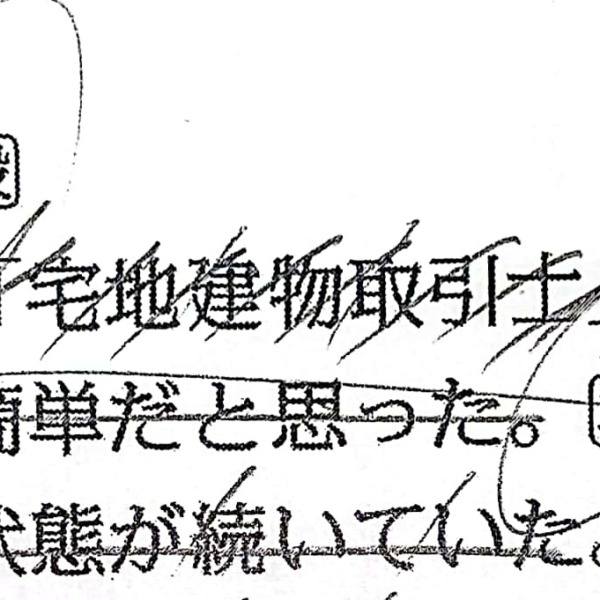 「宅地建物取引士
簡単だと思った。
状態が続いていた。